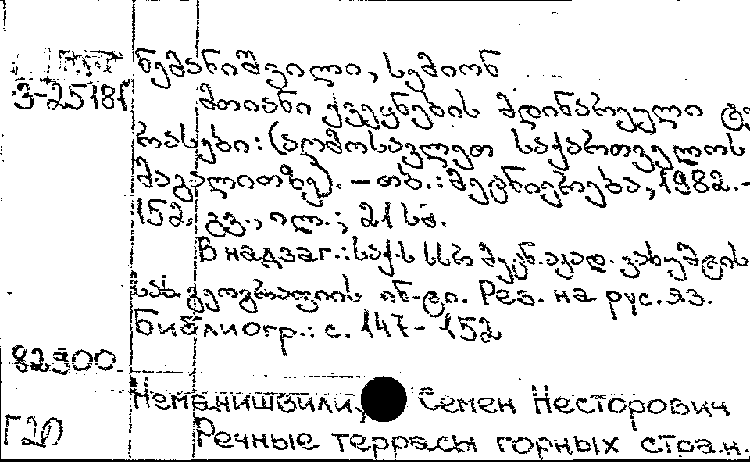 ნემანიშვილი, სემიონ
3-25181 მთიანი ქვეყნების მდინარეული ტე
რასები: (აღმოსავლეთ საქართველოს
მაგალითზე). – თბ.: მეცნიერება, 1982. –
152 გვ., ილ.; 21 სმ.
В надзаг.: საქ. სსრ მეცნ. აკად. ვახუშტის
სახ. გეოგრაფიის ინ-ტი. Рез. на рус. яз.
Библиогр.: с. 147-152
82900.
Неманишвили, Семен Несторович
Г20 Речные террасы горных стран.